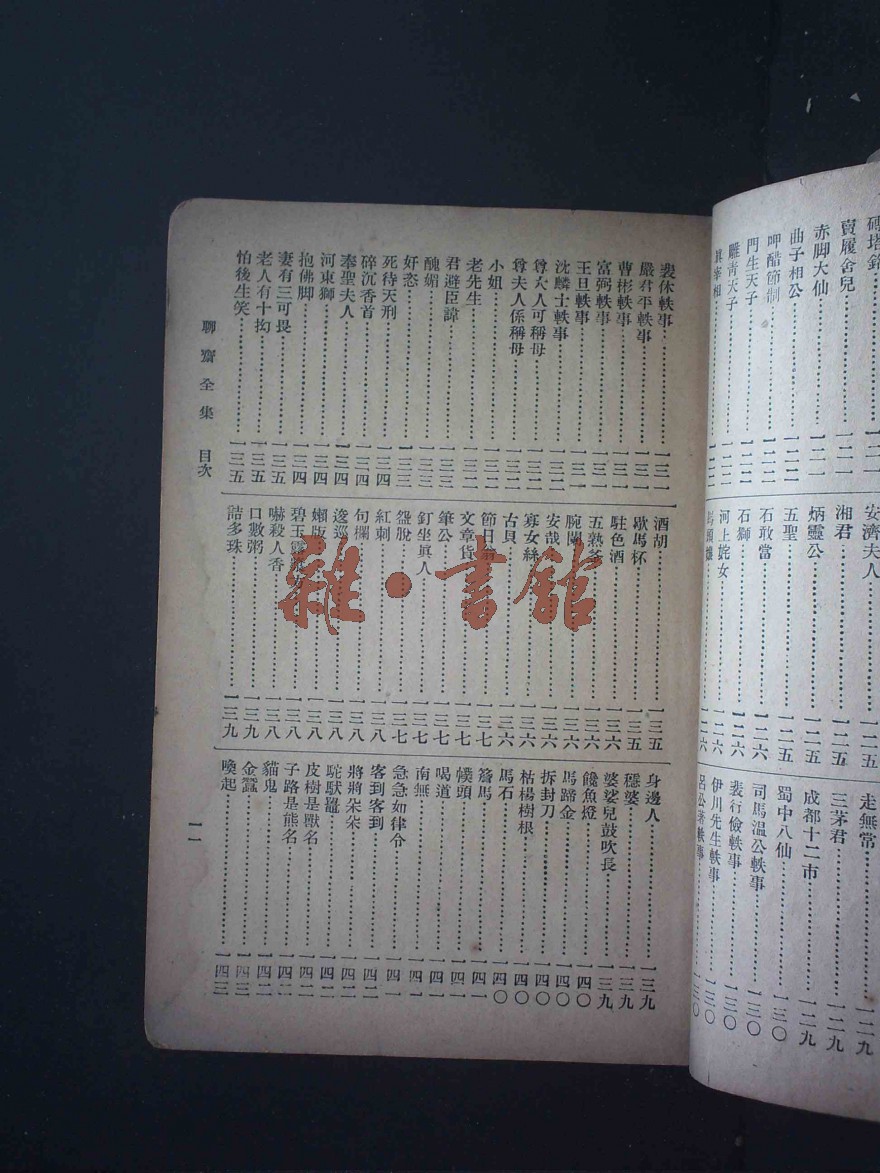 磚塔銘⋯⋯一二一
賣履舍兒⋯⋯一二一
赤脚大仙⋯⋯一二一
曲子相公⋯⋯一二二
呷醋節制⋯⋯一二二
門生天子⋯⋯一二二
雕靑天子⋯⋯一二二
安濟夫人⋯⋯一二五
湘君⋯⋯一二五
炳靈公⋯⋯一二五
五聖⋯⋯一二五
石敢當⋯⋯一二六
石獅⋯⋯一二六
河上姹女⋯⋯一二六
走無常⋯⋯一二九
三茅君⋯⋯一二九
成都十二市⋯⋯一二九
蜀中八仙⋯⋯一三〇
司馬溫公軼事⋯⋯一三〇
裴行儉軼事⋯⋯一三〇
伊川先生軼事⋯⋯一三〇
呂公著軼事⋯⋯一三〇
裴休軼事⋯⋯一三一
嚴君平軼事⋯⋯一三一
曹彬軼事⋯⋯一三一
富弼軼事⋯⋯一三一
王旦軼事⋯⋯一三一
沈麟士軼事⋯⋯一三二
尊大人可稱母⋯⋯一三二
尊夫人係稱母⋯⋯一三二
小妞⋯⋯一三二
老先生⋯⋯一三二
君避臣諱⋯⋯一三三
醜媚⋯⋯一三三
奸恣⋯⋯一三三
死待天刑⋯⋯一三四
碎沉香首⋯⋯一三四
奉聖夫人⋯⋯一三四
河東獅⋯⋯一三四
抱佛脚⋯⋯一三四
妻有三可畏⋯⋯一三五
老人有十拗⋯⋯一三五
怕後生笑⋯⋯一三五
酒胡⋯⋯一三五
歇馬杯⋯⋯一三五
駐色酒⋯⋯一三六
五熟釜⋯⋯一三六
腕闌⋯⋯一三六
安哉⋯⋯一三六
寡女絲⋯⋯一三六
古貝⋯⋯一三六
節日⋯⋯一三七
文章貨⋯⋯一三七
筆公⋯⋯一三七
釘坐眞人⋯⋯一三七
兗脫⋯⋯一三七
紅刺⋯⋯一三八
句欄⋯⋯一三八
逡巡⋯⋯一三八
嬾版⋯⋯一三八
碧玉⋯⋯一三八
嚇殺人香⋯⋯一三八
口數粥⋯⋯一三九
詰多珠⋯⋯一三九
身邊人⋯⋯一三九
穩婆⋯⋯一三九
婆娑兒鼓吹長⋯⋯一三九
饞魚燈⋯⋯一四〇
馬蹄金⋯⋯一四〇
拆封刀⋯⋯一四〇
枯楊樹根⋯⋯一四〇
馬石⋯⋯一四〇
簪馬⋯⋯一四一
幞頭⋯⋯一四一
喝道⋯⋯一四一
南無⋯⋯一四一
急急如律令⋯⋯一四一
客到客到⋯⋯一四二
將將朵朵⋯⋯一四二
駝馱⋯⋯一四二
皮樹是獸名⋯⋯一四二
子路是熊名⋯⋯一四二
貓鬼⋯⋯一四二
金蠶⋯⋯一四三
喚起⋯⋯一四三
聊齋全集 目次
一一
雜·書館